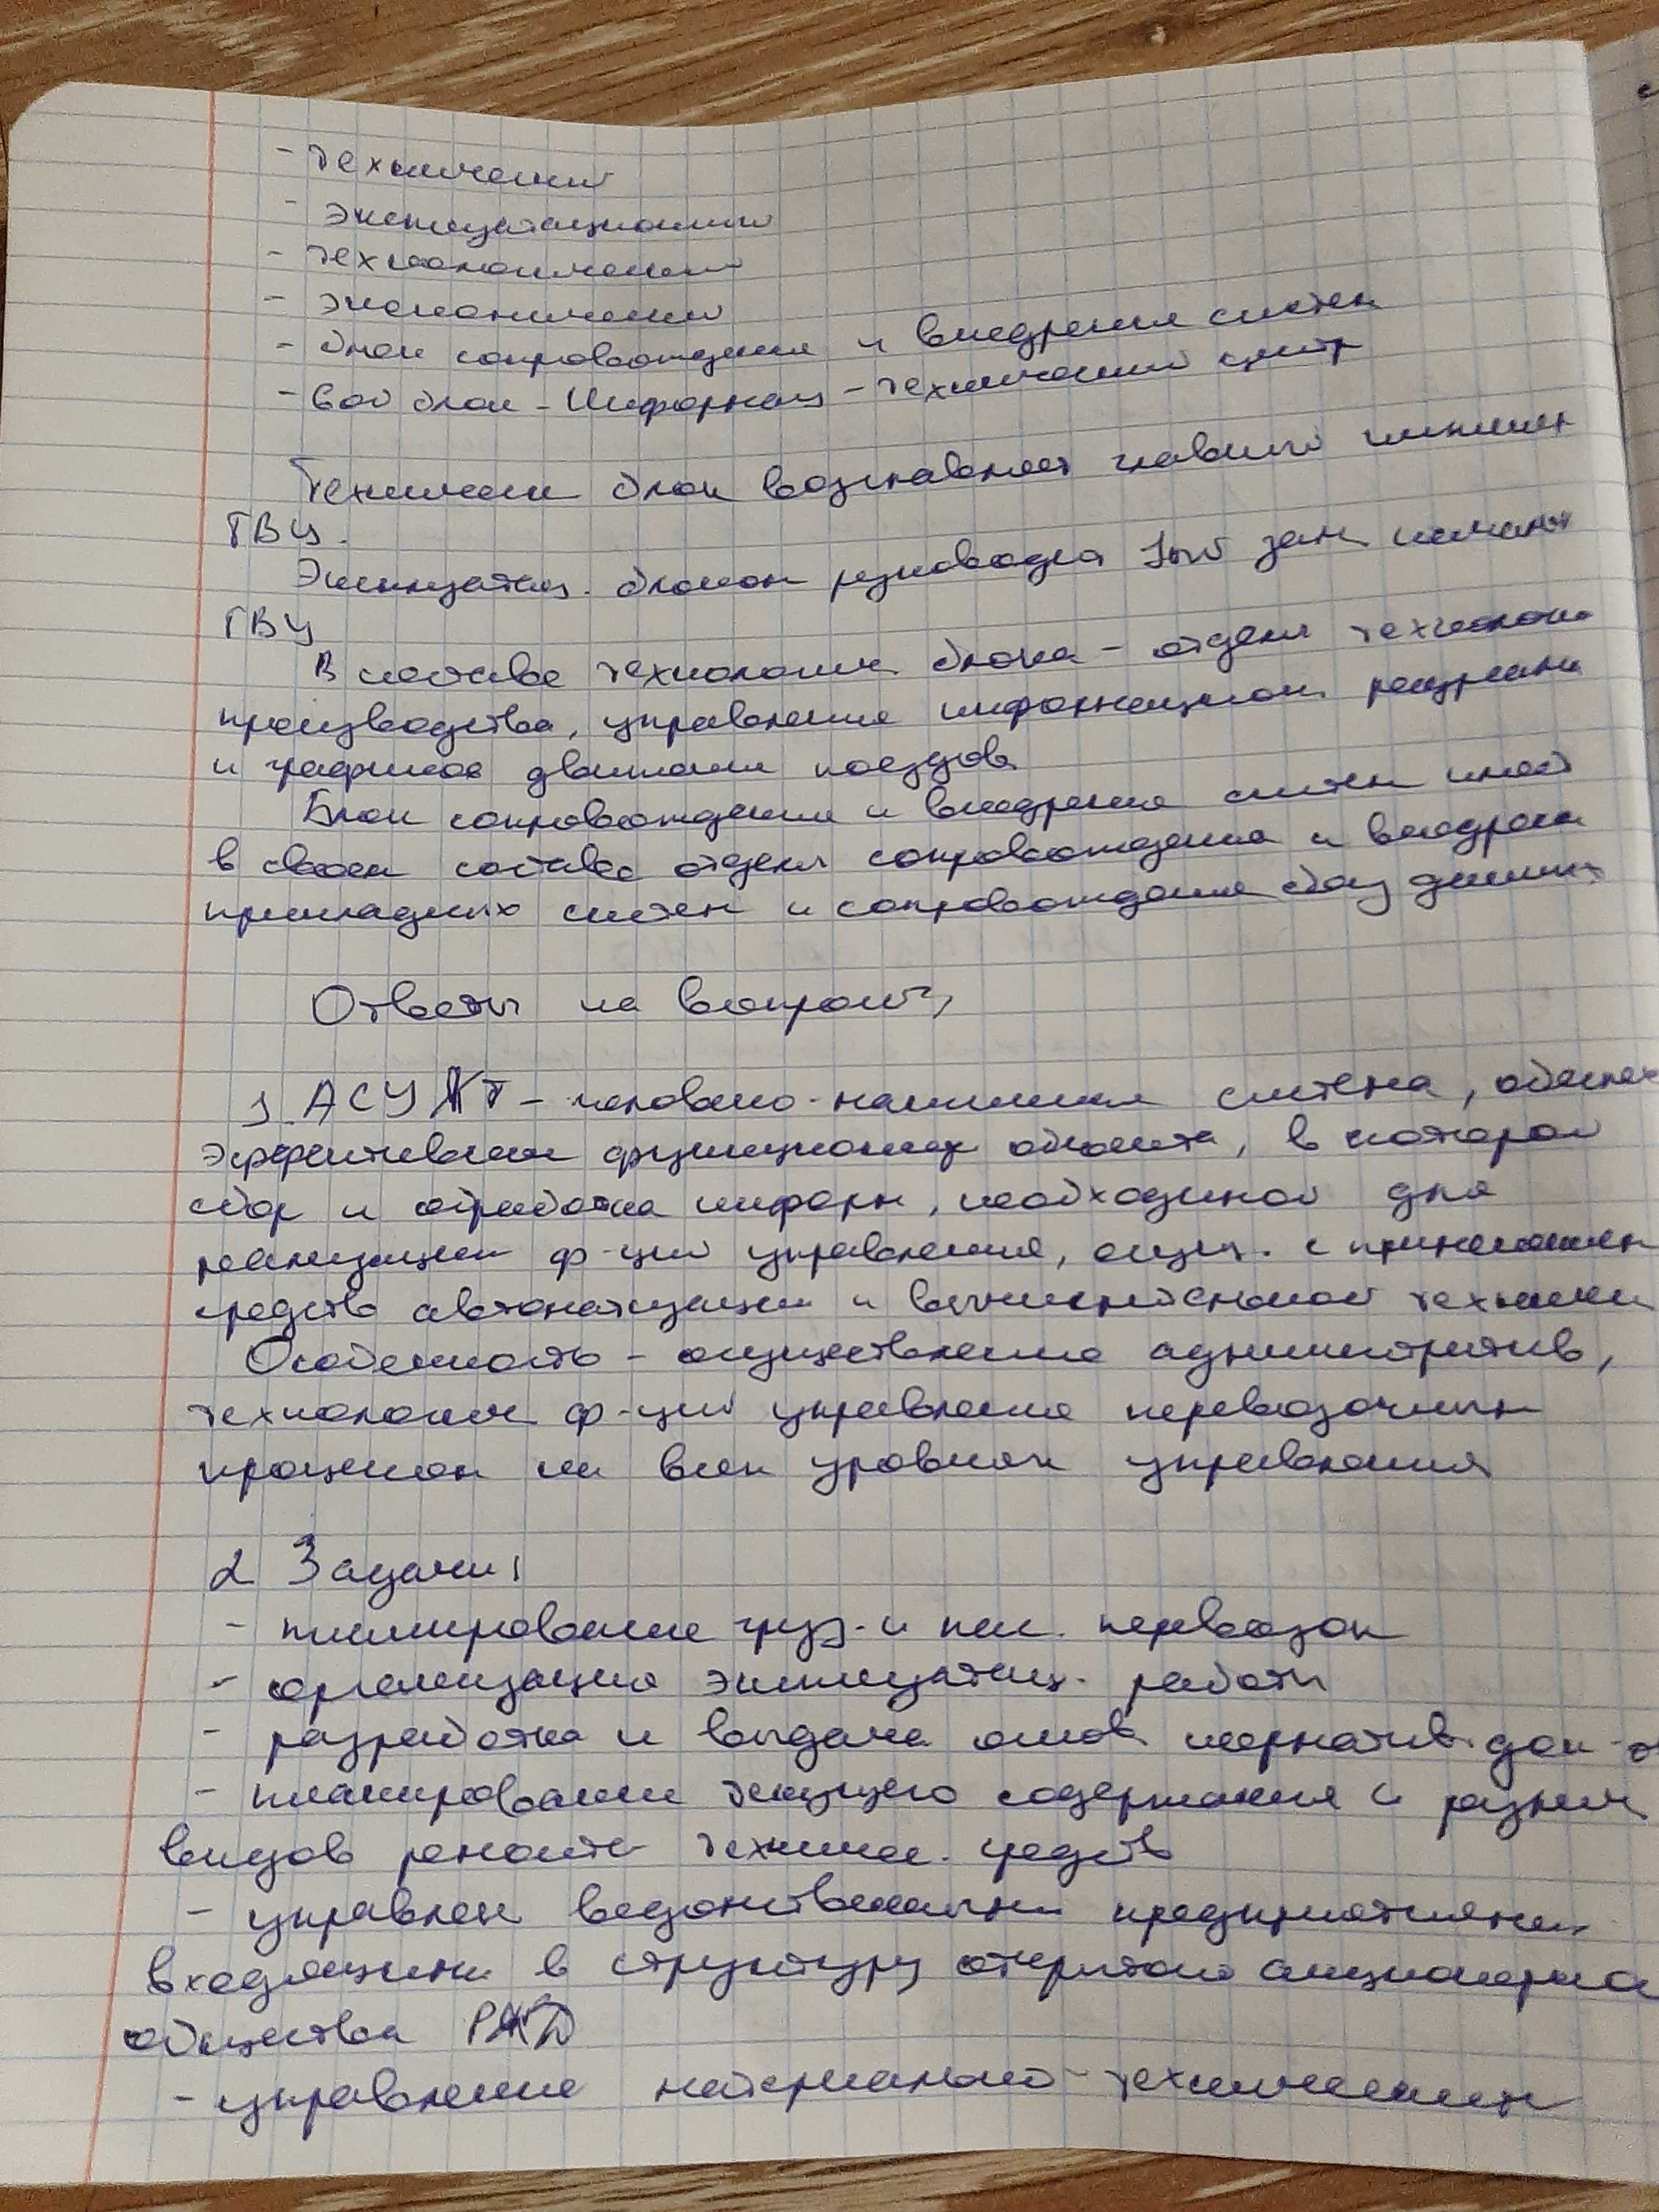 - технический
- эксплуатационный
- технологический
- экономический
- блок сопровождения и внедрения систем
- 6ой блок - Информац - технический центр
Техническ блок возглавляет главный инженер
ГВЦ.
Эксплуатац. блоком руководит 1ый зам началь
ГВЦ
В составе технологич блока - отделы технологи
производства, управление информацион ресурсами
и графиков движения поездов
Блок сопровождения и внедрения систем имеет
в своем составе отделы сопровождения и внедрен
прикладных систем и сопровождения баз данных
Ответы на вопросы
1. АСУ ЖТ - человеко-машинная система, обеспеч
эффективное функционир объекта, в которой
сбор и обработка информ, необходимой для
реализации ф-ций управления, осущ. с применением
средств автоматизации и вычислительной техники
Особенность - осуществление административ,
технологич ф-ций управления перевозочным
процессом на всех уровнях управления
2 Задачи:
- планирование груз. и пас. перевозок
- организация эксплуатац. работы
- разработка и выдача основ норматив. док-т
- планирование текущего содержания и разных
видов ремонта технич. средств
- управлен ведомственными предприятиями
входящими в структуру открытого акционерно
общества РЖД
- управление материально-техническим